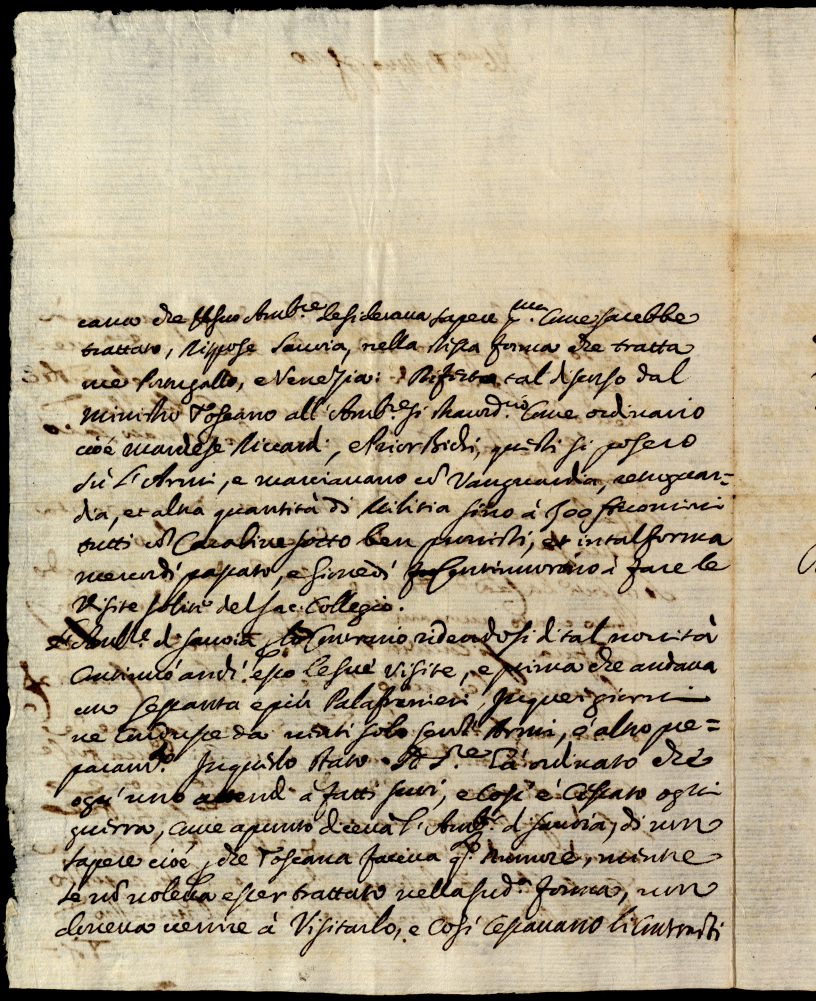 cano che il suo Amb.re desiderava sapere p.ma come sarebbe
trattato, Rispose Savoia, nella stessa forma che tratta
me Portugallo, e Venezia: Riferto tal discorso dal
Ministro Toscano all' Amb.re si straord.rio Come ordinario
cioè Marchese Riccardi, e Prior Bichi, questi si posero
sù l'Armi, e marciavano cõ Vanguardia, retroguar=
dia, et altra quantità di Militia sino à 500 huomini
tutti cõ Carabine sotto ben provisti, et in tal forma
mercordì passato, e Giovedì continuorono à fare le
Visite solite del Sac: Collegio.
L'Amb.re di Savoia p lo Contrario ridendosi di tal novità
Continuò anch'esso le sue visite, e prima che andava
con sessanta e più Palafrenieri, in quei giorni
ne condusse da venti solo senz'Armi, ò altro pre=
param.to. In questo stato N. S.re hà ordinato che
ogn'uno attend à fatti suoi, e così è Cessato ogni
guerra, come apunto diceva l'Amb.re di Savoia, di non
sapere cioè, che Toscana faceva q.o rumore, mentre
se nõ voleva esser trattato nella sud.a forma, non
doveva venire à Visitarlo, e Così Cessavano li Contrasti